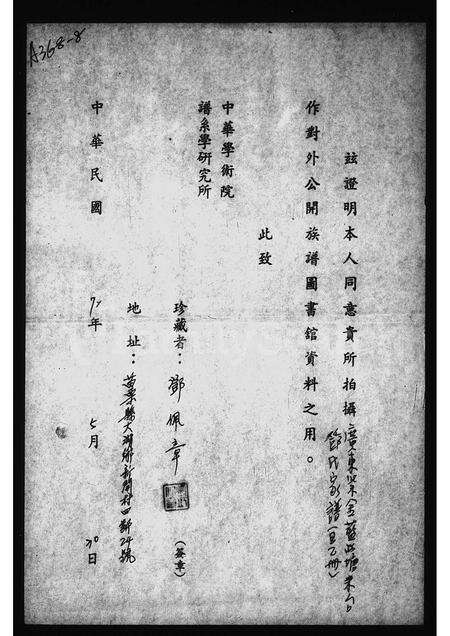 A368-8
茲證明本人同意貴所拍攝廣東紫金藍塘
鄧氏家譜
作對外公開族譜圖書館資料之用。
此致
中華學術院
譜系學研究所
珍藏者：鄧佩章
(簽章)
地址：苗栗縣大湖鄉新開村四鄰24號
中華民國 年 5月 30日